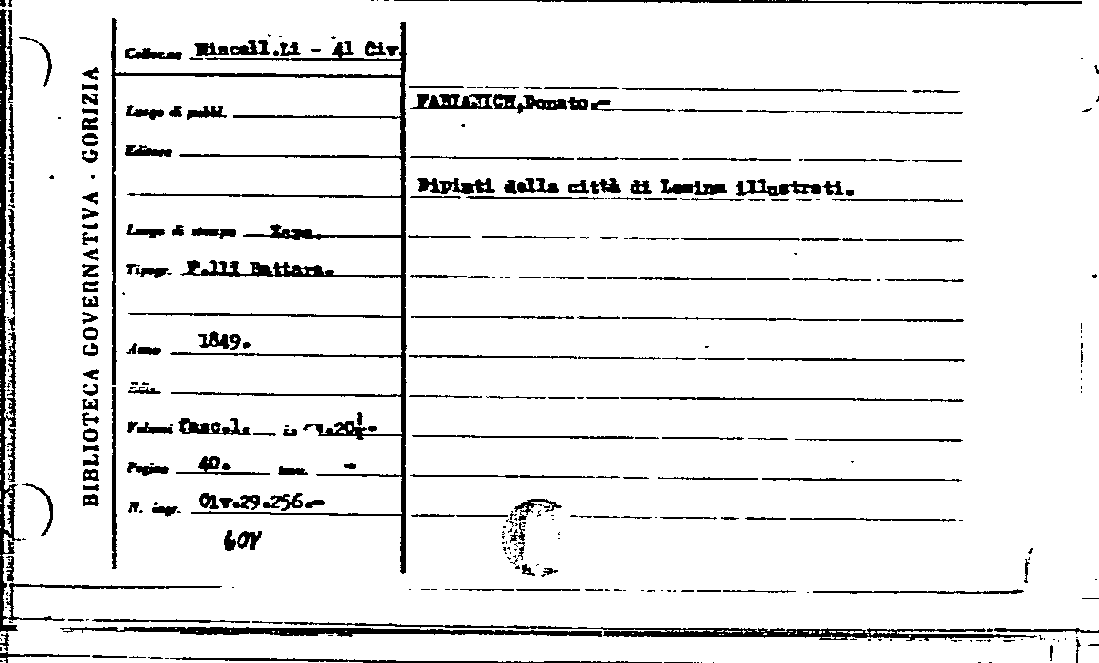 BIBLIOTECA GOVERNATIVA · GORIZIA
Colloc.ne Miscell.Li - 41 Civ.
FABIANICH,Donato.-
Luogo di pubbl.
Editore
Dipinti della città di Lesina illustrati.
Luogo di stampa Zara.
Tipogr. F.lli Battara.
Anno 1849.
Ediz.
Volumi fasc.1. in 20½-
Pagine 40. tavv. -
N. ingr. Civ.29.256.-